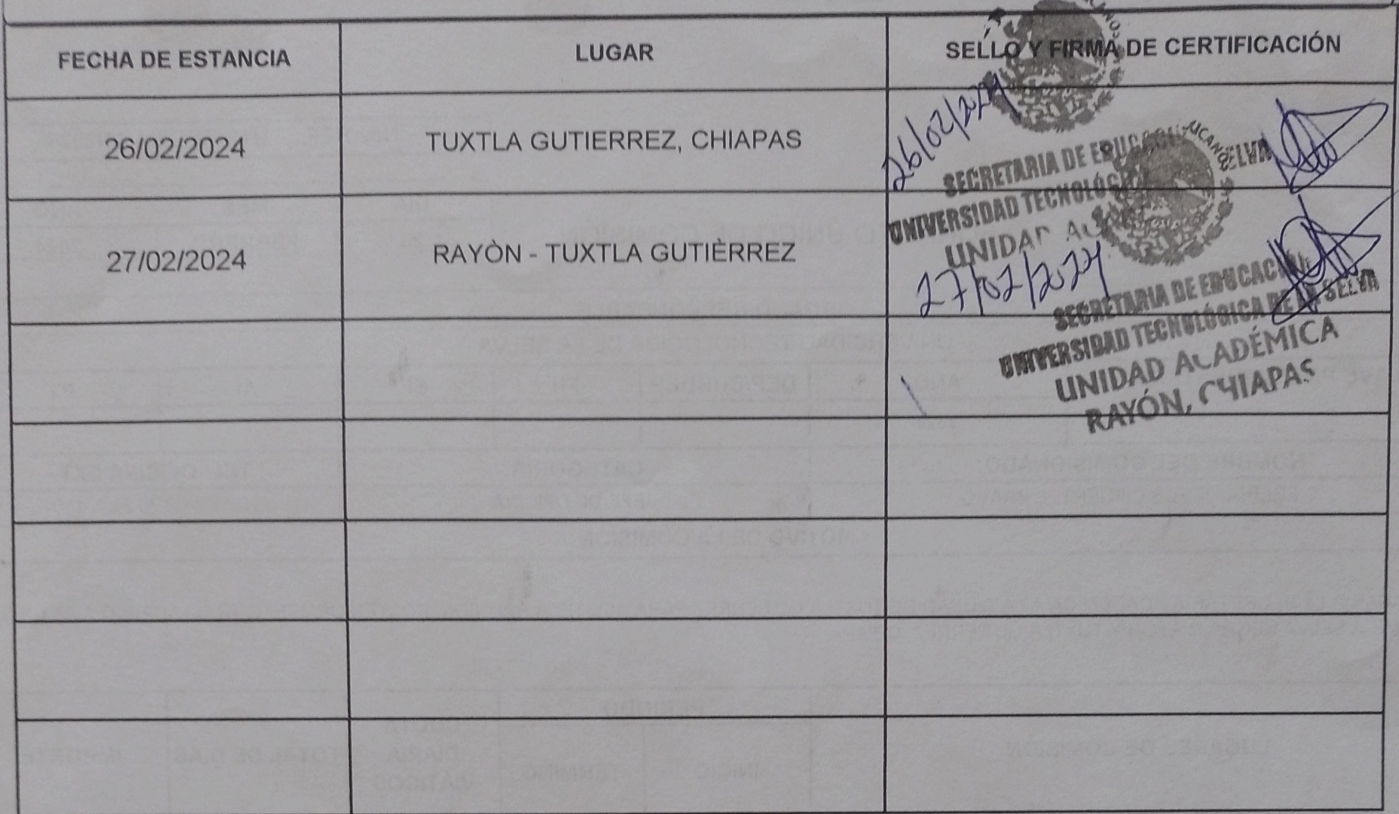 FECHA DE ESTANCIA LUGAR SELLO Y FIRMA DE CERTIFICACIÓN
26/02/2024 TUXTLA GUTIERREZ, CHIAPAS 26/02/2024
SECRETARIA DE SELVA
UNIVERSIDAD TECNOLÓGICA
UNIDAD
27/02/2024 RAYÒN - TUXTLA GUTIÈRREZ 27/02/2024
SECRETARIA DE EDUCACIÓN
UNIVERSIDAD TECNOLÓGICA DE LA SELVA
UNIDAD ACADÉMICA
RAYÓN, CHIAPAS